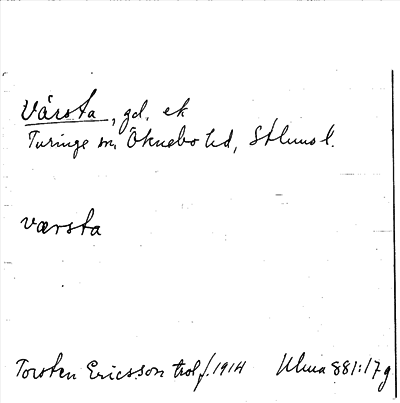 Vårsta, gd. ek
Turinge sn, Öknebo hd, Sthms l.
værsta
Torsten Ericsson trol. f. 1914 Uma 881:17g